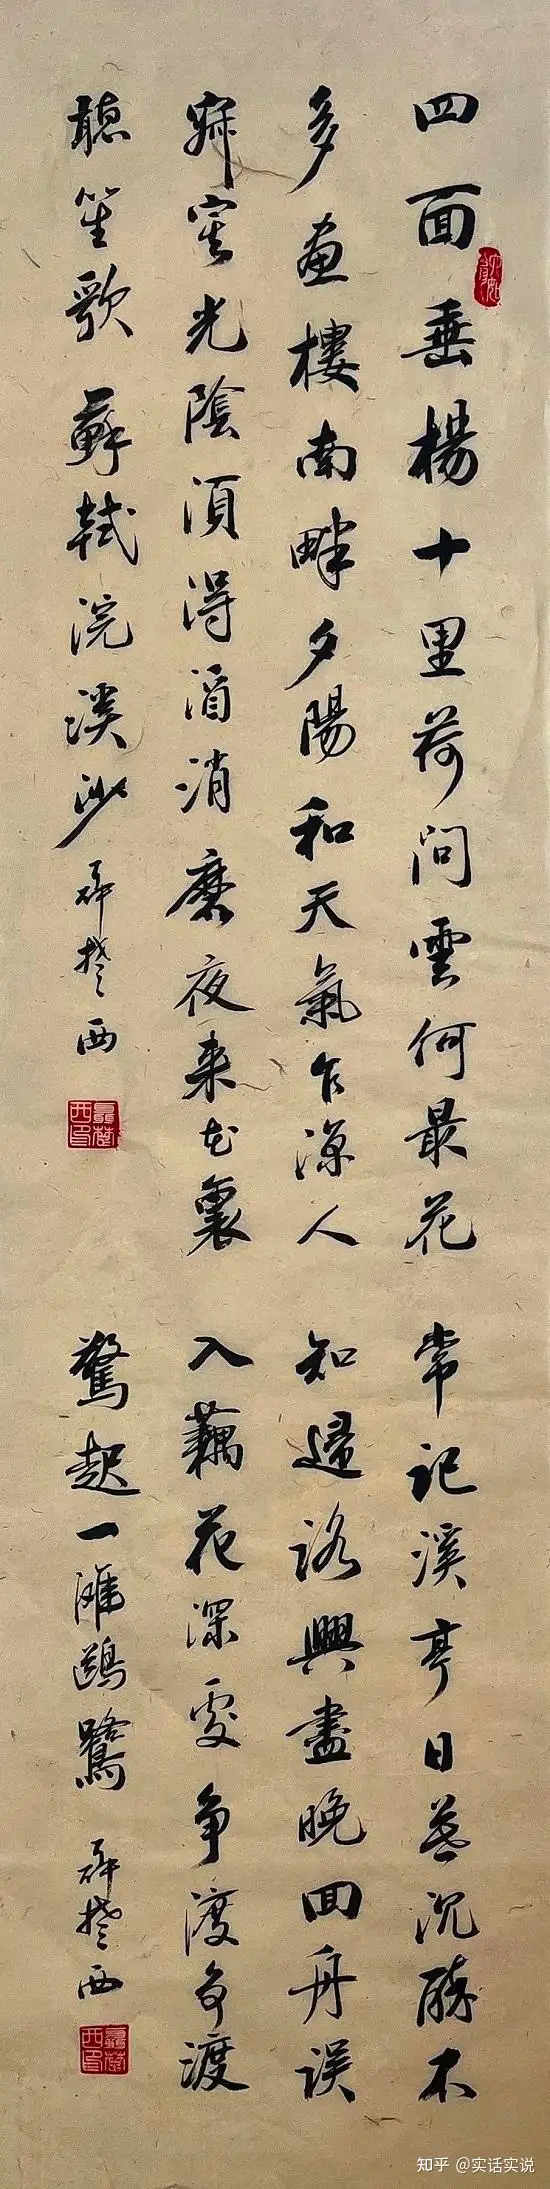 四面垂楊十里荷問雲何最花
多畫樓南畔夕陽和天氣乍涼人
寂寞光陰須得酒消磨夜来花裏
聽笙歌 蘇軾浣溪沙 楚西
常記溪亭日暮沉醉不
知歸路興盡晚回舟誤
入藕花深處争渡争渡
驚起一灘鷗鷺 楚西
知乎 @实话实说